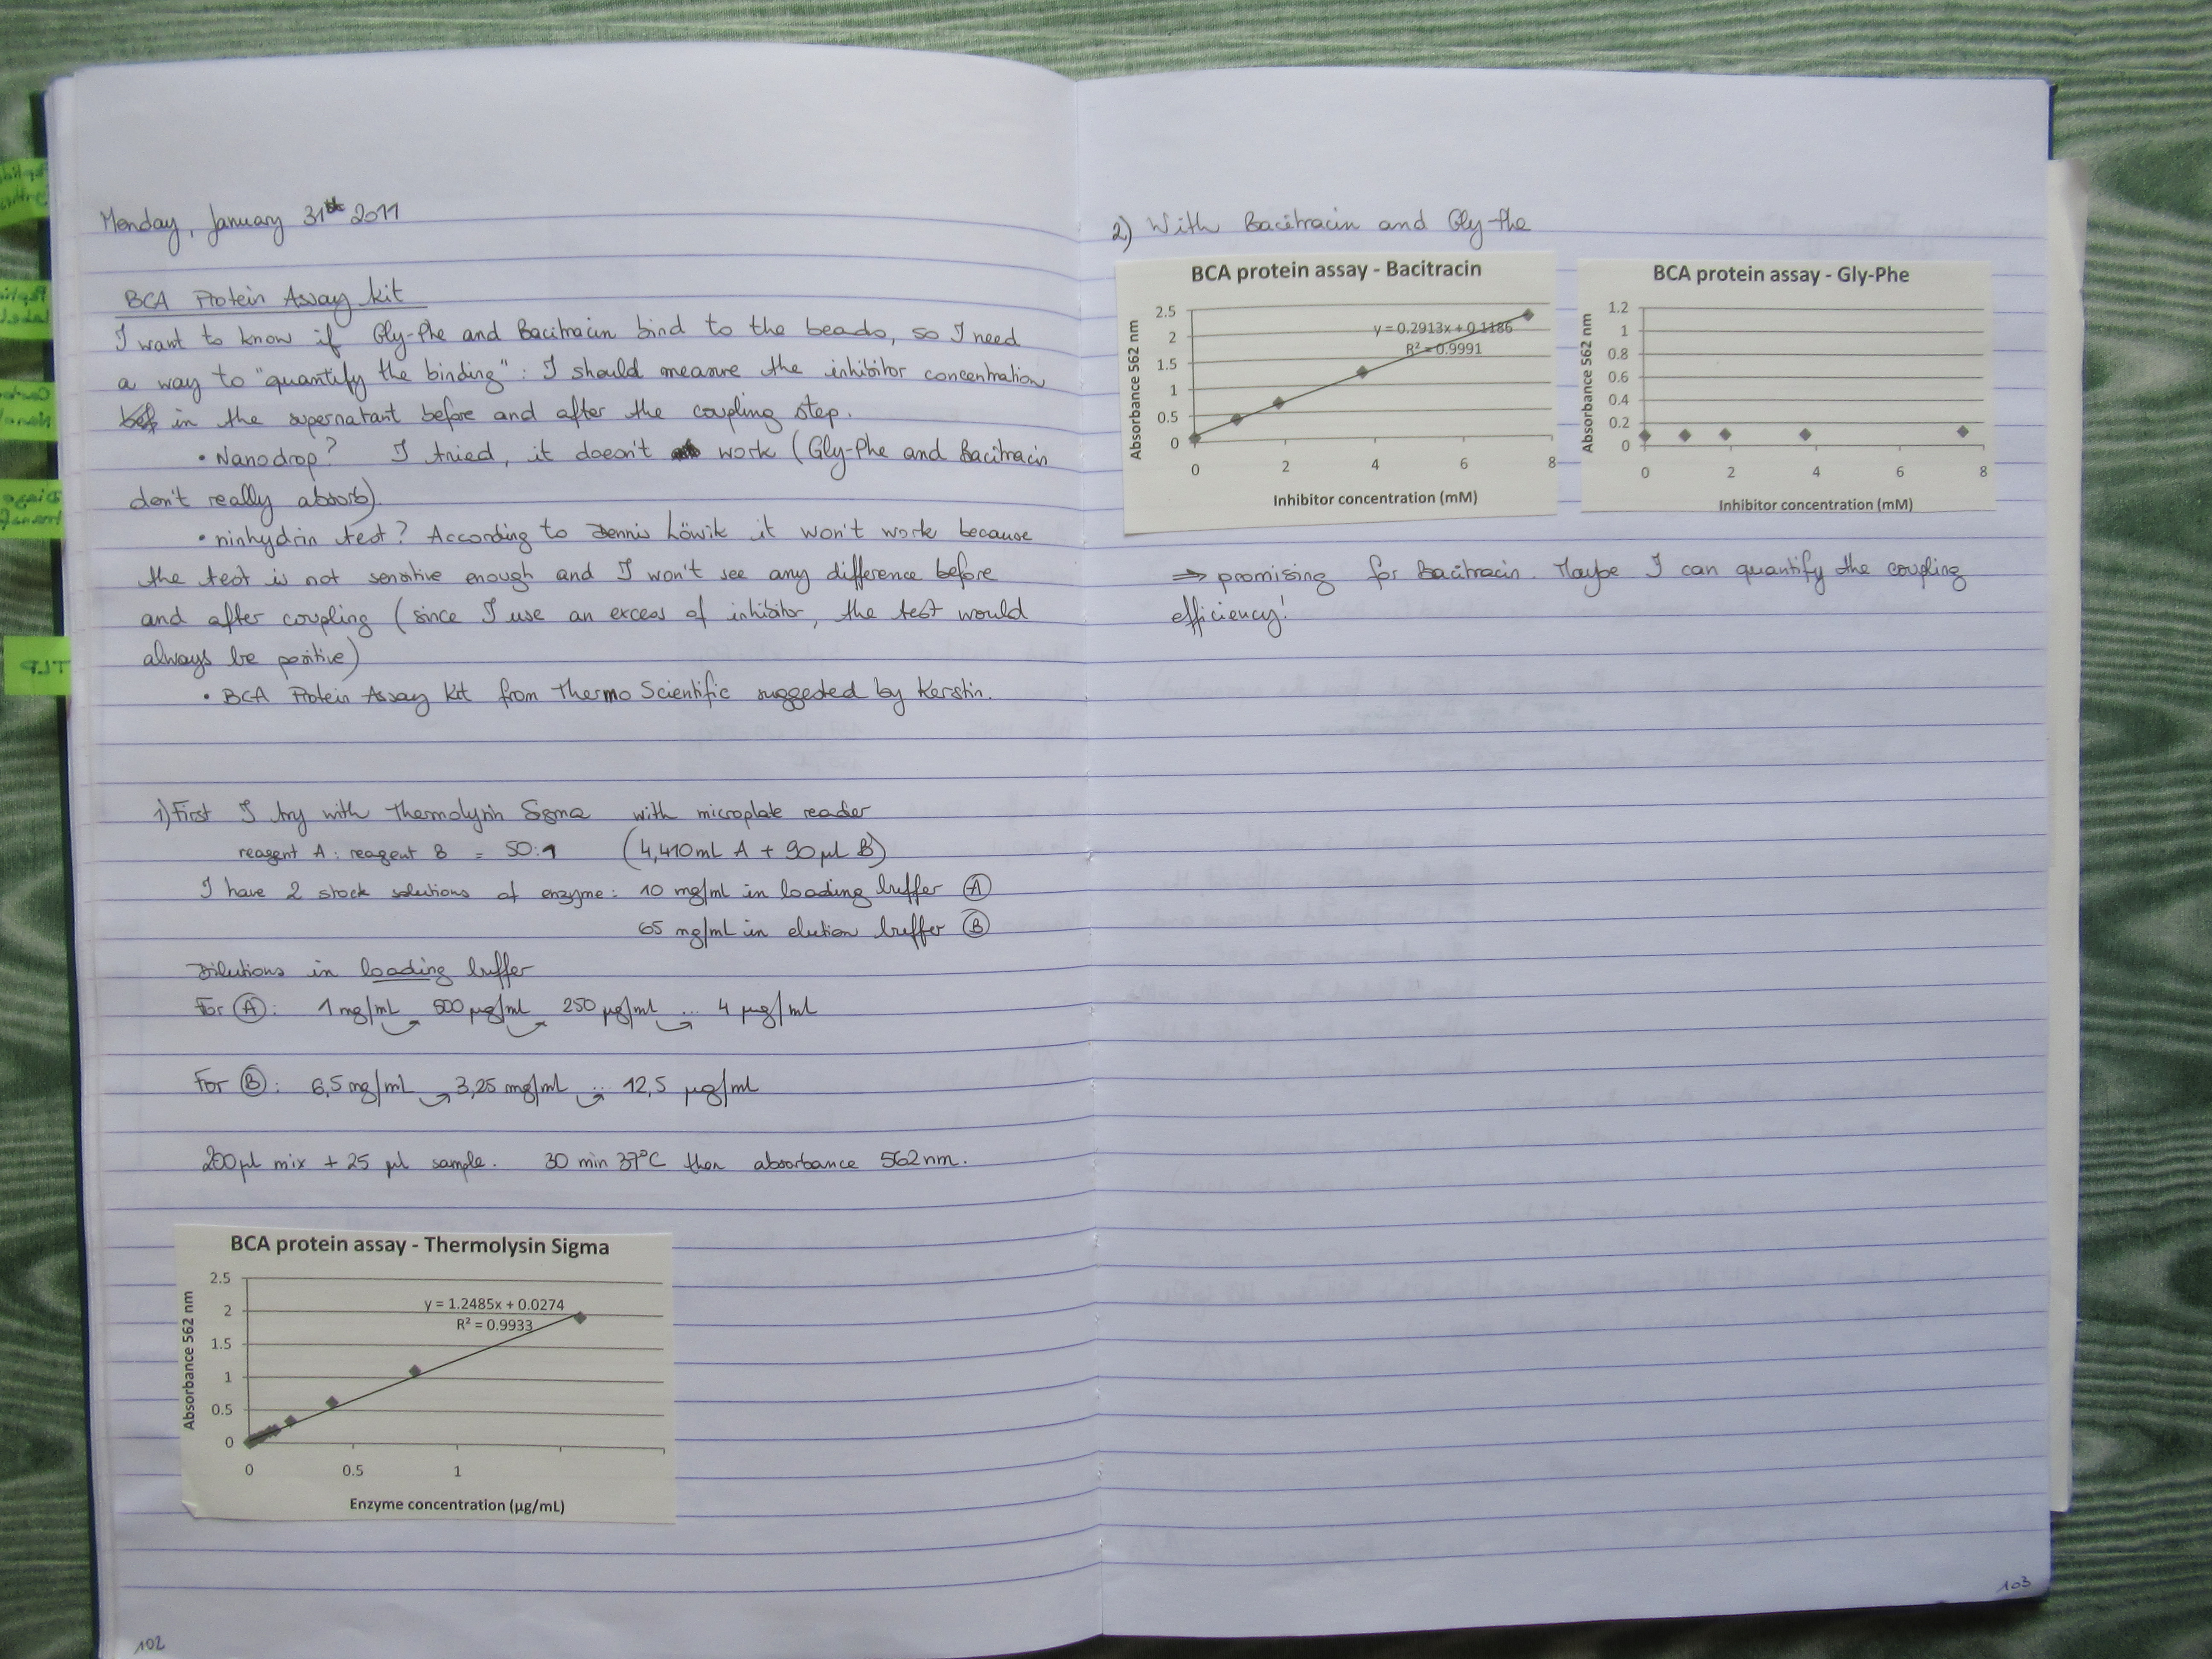 Monday, January 31st 2011
BCA Protein Assay kit
I want to know if Gly-Phe and Bacitracin bind to the beads, so I need
a way to "quantify the binding": I should measure the inhibitor concentration
in the supernatant before and after the coupling step.
• Nanodrop? I tried, it doesn't work (Gly-Phe and Bacitracin
don't really absorb).
• ninhydrin test? According to Dennis Löwik it won't work because
the test is not sensitive enough and I won't see any difference before
and after coupling (since I use an excess of inhibitor, the test would
always be positive)
• BCA Protein Assay Kit from Thermo Scientific suggested by Kerstin.
1) First I try with Thermolysin Sigma with microplate reader
reagent A : reagent B = 50:1 (4,410 mL A + 90 µl B)
I have 2 stock solutions of enzyme: 10 mg/ml in loading buffer A
65 mg/mL in elution buffer B
Dilutions in loading buffer
For A: 1 mg/mL 500 µg/mL 250 µg/ml ... 4 µg/ml
For B: 6,5 mg/mL 3,25 mg/mL ... 12,5 µg/ml
200µl mix + 25 µl sample. 30 min 37°C then absorbance 562 nm.
BCA protein assay - Thermolysin Sigma
Absorbance 562 nm
2.5
2
1.5
1
0.5
0
y = 1.2485x + 0.0274
R² = 0.9933
0 0.5 1
Enzyme concentration (µg/mL)
102
2) With Bacitracin and Gly-Phe
BCA protein assay - Bacitracin
Absorbance 562 nm
2.5
2
1.5
1
0.5
0
y = 0.2913x + 0.1186
R² = 0.9991
0 2 4 6 8
Inhibitor concentration (mM)
BCA protein assay - Gly-Phe
Absorbance 562 nm
1.2
1
0.8
0.6
0.4
0.2
0
0 2 4 6 8
Inhibitor concentration (mM)
⇒ promising for Bacitracin. Maybe I can quantify the coupling
efficiency!
103
TLP